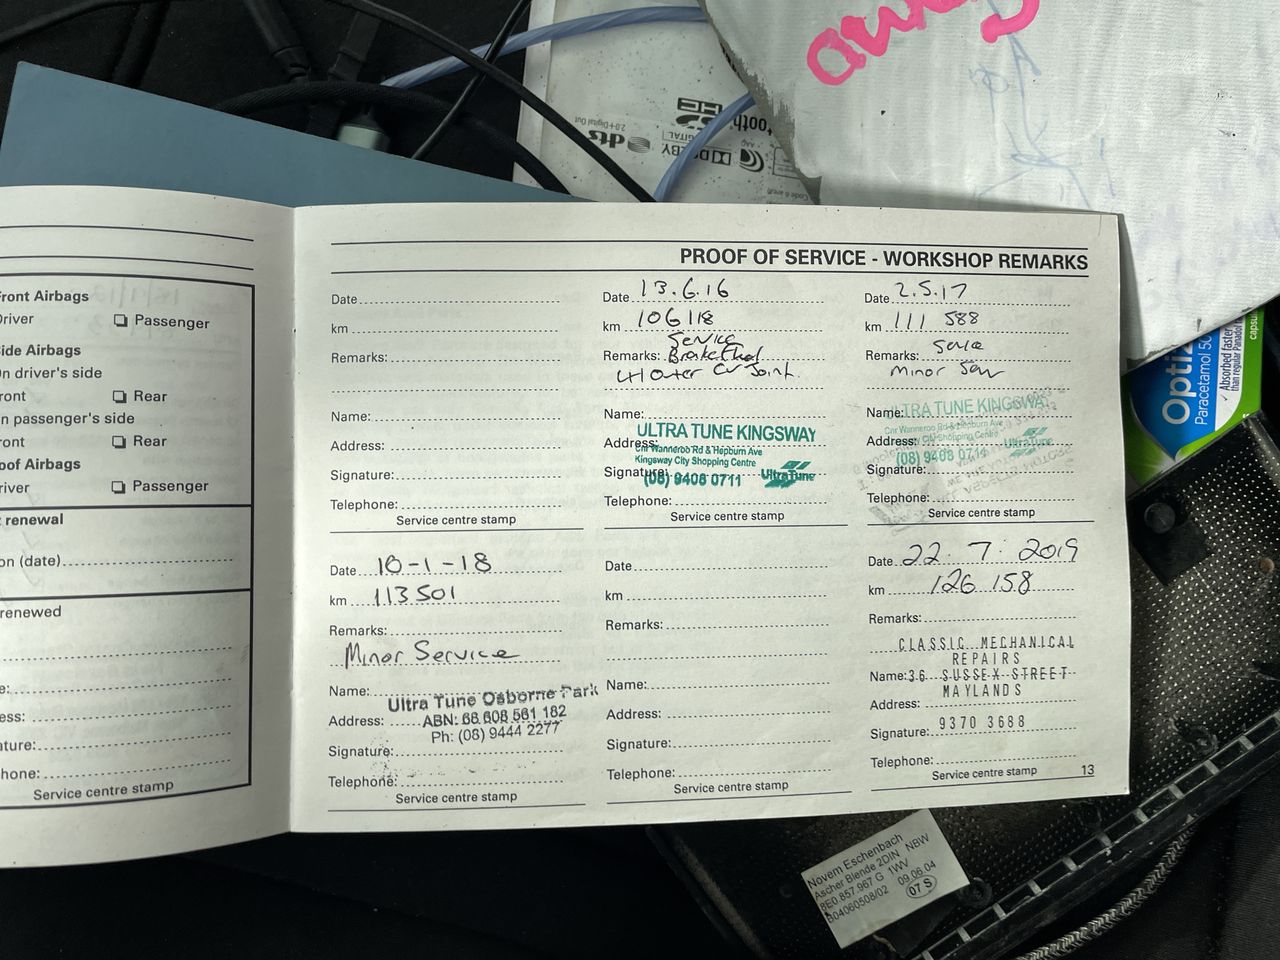 2.0+Digital Out
dts
HE
DIGITAL
DOLBY
AAC
tooth
Code 6 and
Front Airbags
Driver
❏ Passenger
Side Airbags
On driver's side
Front
❏ Rear
On passenger's side
Front
❏ Rear
Roof Airbags
Driver
❏ Passenger
renewal
on (date)
renewed
e:
ess:
ature:
hone:
Service centre stamp
PROOF OF SERVICE - WORKSHOP REMARKS
Date
km
Remarks:
Name:
Address:
Signature:
Telephone:
Service centre stamp
Date 13.6.16
km 106118
Service
Remarks:
LH Outer CV Joint
Name:
ULTRA TUNE KINGSWAY
Address:
Cnr Wanneroo Rd & Hepburn Ave
Kingsway City Shopping Centre
Signature:
(08) 9408 0711
UltraTune
Telephone:
Service centre stamp
Date 2.5.17
km 111 588
Remarks:
Minor
Name:
ULTRA TUNE KINGSWAY
Cnr Wanneroo Rd & Hepburn Ave
Address:
Kingsway City Shopping Centre
(08) 9408 0711
UltraTune
Signature:
Telephone:
Service centre stamp
Date 10-1-18
km 113501
Remarks:
Minor Service
Name:
Ultra Tune Osborne Park
Address:
ABN: 66 608 561 182
Ph: (08) 9444 2277
Signature:
Telephone:
Service centre stamp
Date
km
Remarks:
Name:
Address:
Signature:
Telephone:
Service centre stamp
Date 22.7.2019
km 126 158
Remarks:
CLASSIC MECHANICAL
REPAIRS
Name: 36 SUSSEX STREET
MAYLANDS
Address:
9370 3688
Signature:
Telephone:
Service centre stamp
13
Opti
Paracetamol 50
Absorbed faster
than regular Panadol
caps
Novem Eschenbach
Ascher Blende 2DIN NBW
8E0.857.967 G 1WV
B04060508/02 09.06.04
07 S